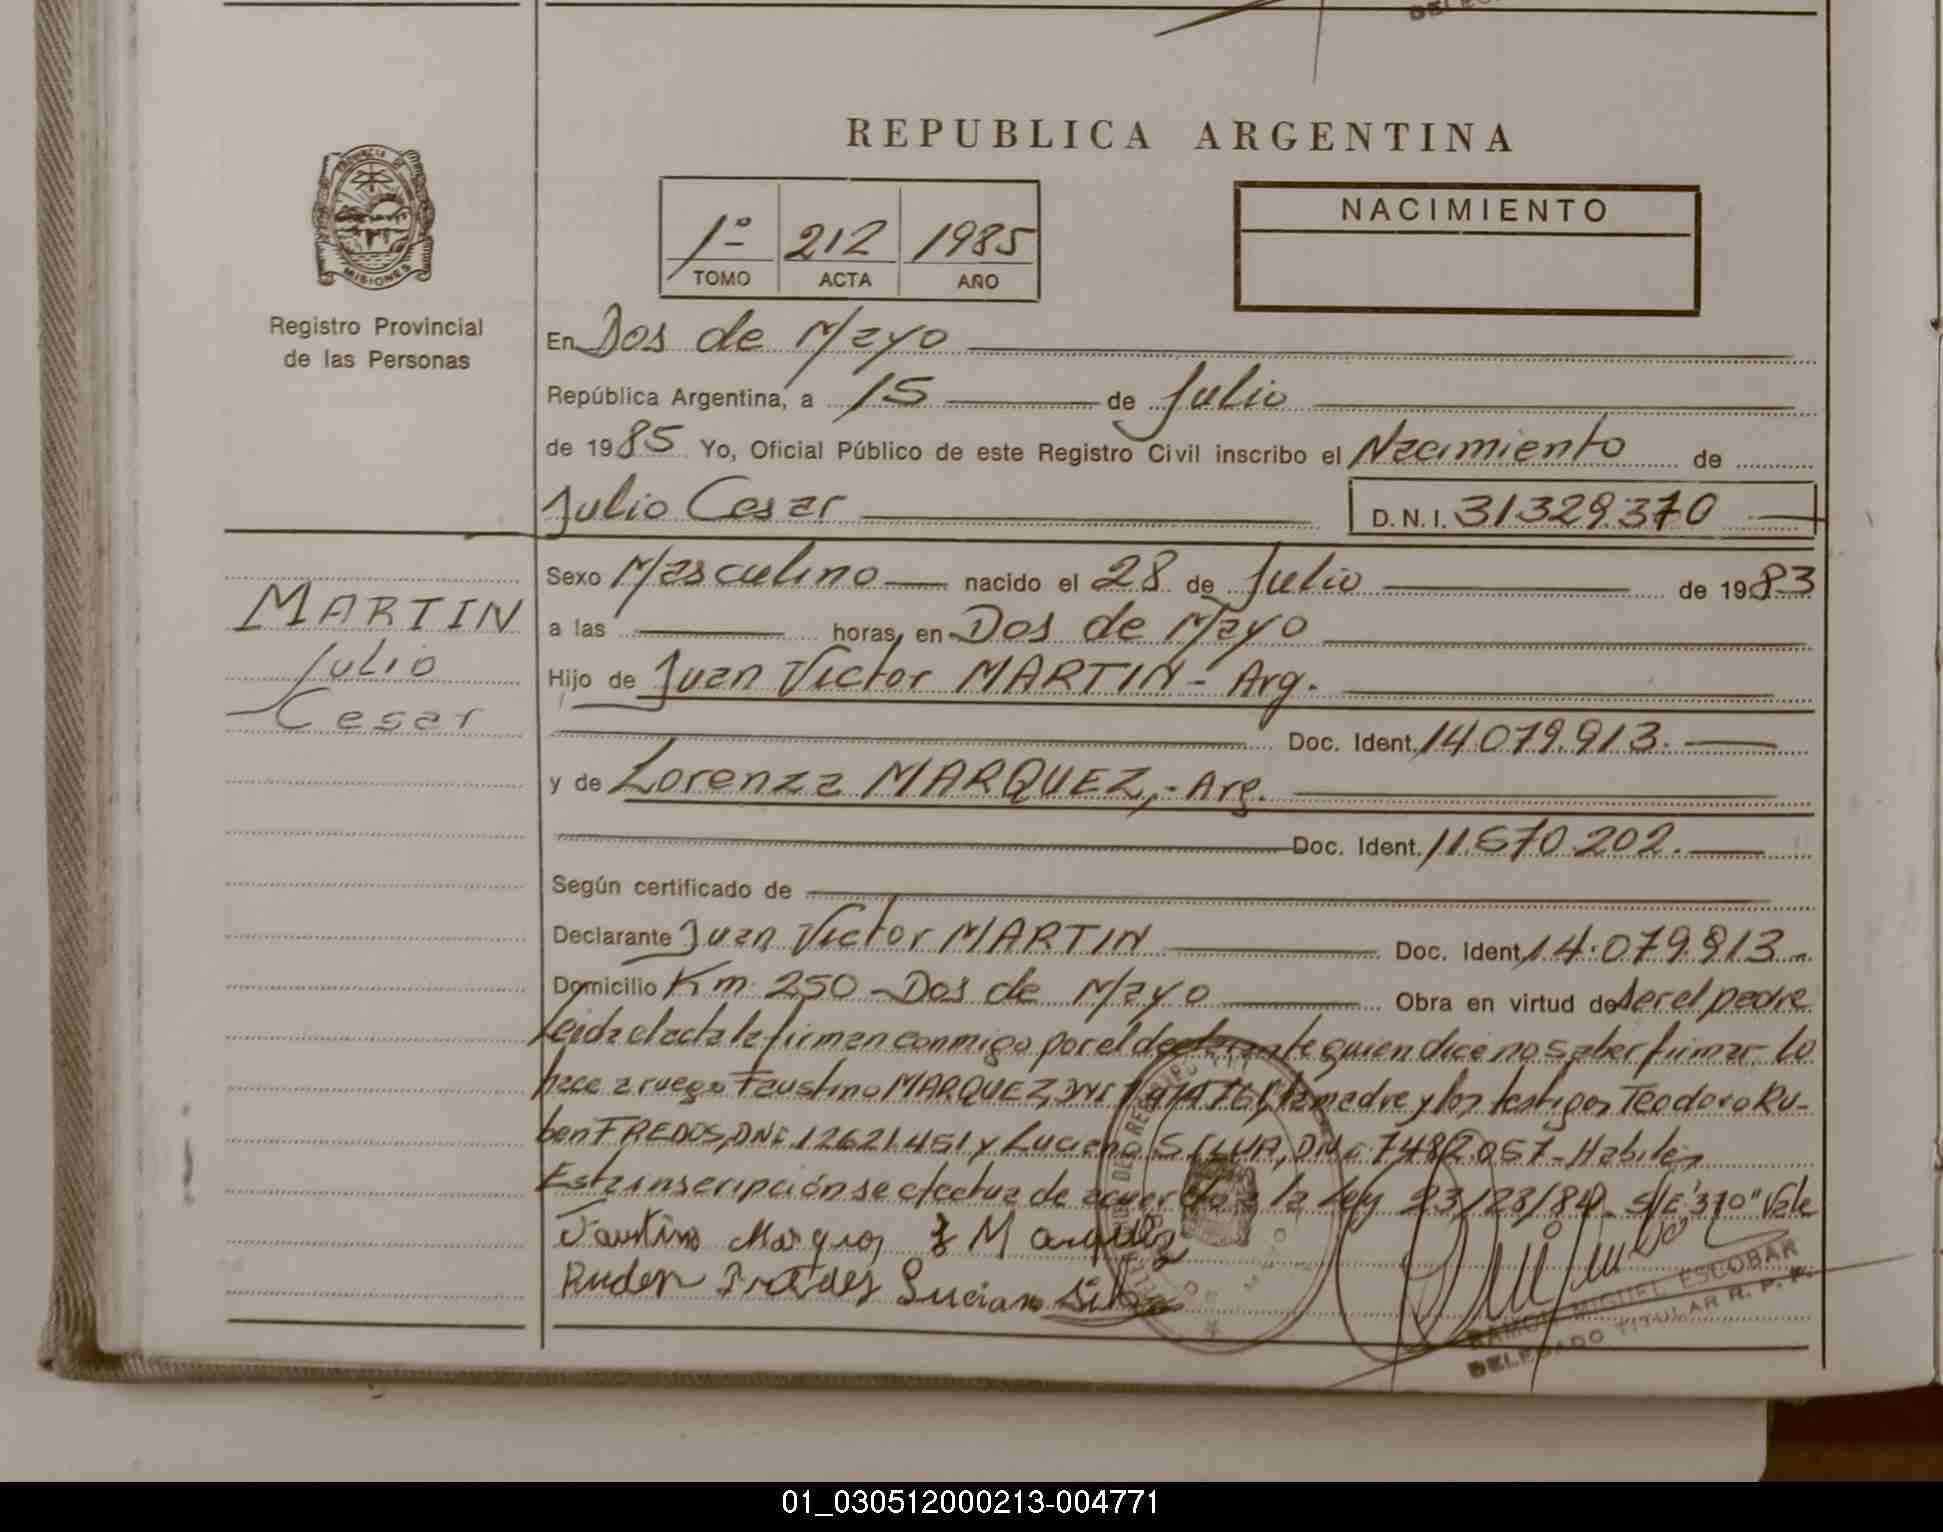 REPUBLICA ARGENTINA
PROVINCIA DE
MISIONES
Registro Provincial
de las Personas
1º 212 1985
TOMO ACTA AÑO
NACIMIENTO
En Dos de Mayo
República Argentina, a 15 de Julio
de 1985 Yo, Oficial Público de este Registro Civil inscribo el Nacimiento de
Julio Cesar D.N.I. 31329.370
MARTIN
Julio
Cesar
Sexo Masculino nacido el 28 de Julio de 1983
a las horas, en Dos de Mayo
Hijo de Juan Victor MARTIN - Arg.
Doc. Ident. 14.079.913.
y de Lorenza MARQUEZ,- Arg.
Doc. Ident. 11.670.202.
Según certificado de
Declarante Juan Victor MARTIN Doc. Ident. 14.079.913
Domicilio Km 250 - Dos de Mayo Obra en virtud de ser el padre
Leida el acta la firman conmigo por el declarante quien dice no saber firmar lo
hace a ruego Faustino MARQUEZ, DNI la madre y los testigos Teodoro Ru-
ben FREDOS, DNI. 12621.451 y Luciano SILVA, DNI. 7482.057 - Habiles
Esta inscripción se efectua de acuerdo a la Ley 23/23/84. S/E "370" Vale
Faustino Marques Marquez
Ruden Fredes Luciano Silva
RAMON MIGUEL ESCOBAR
DELEGADO TITULAR R. P. P.
01_030512000213-004771